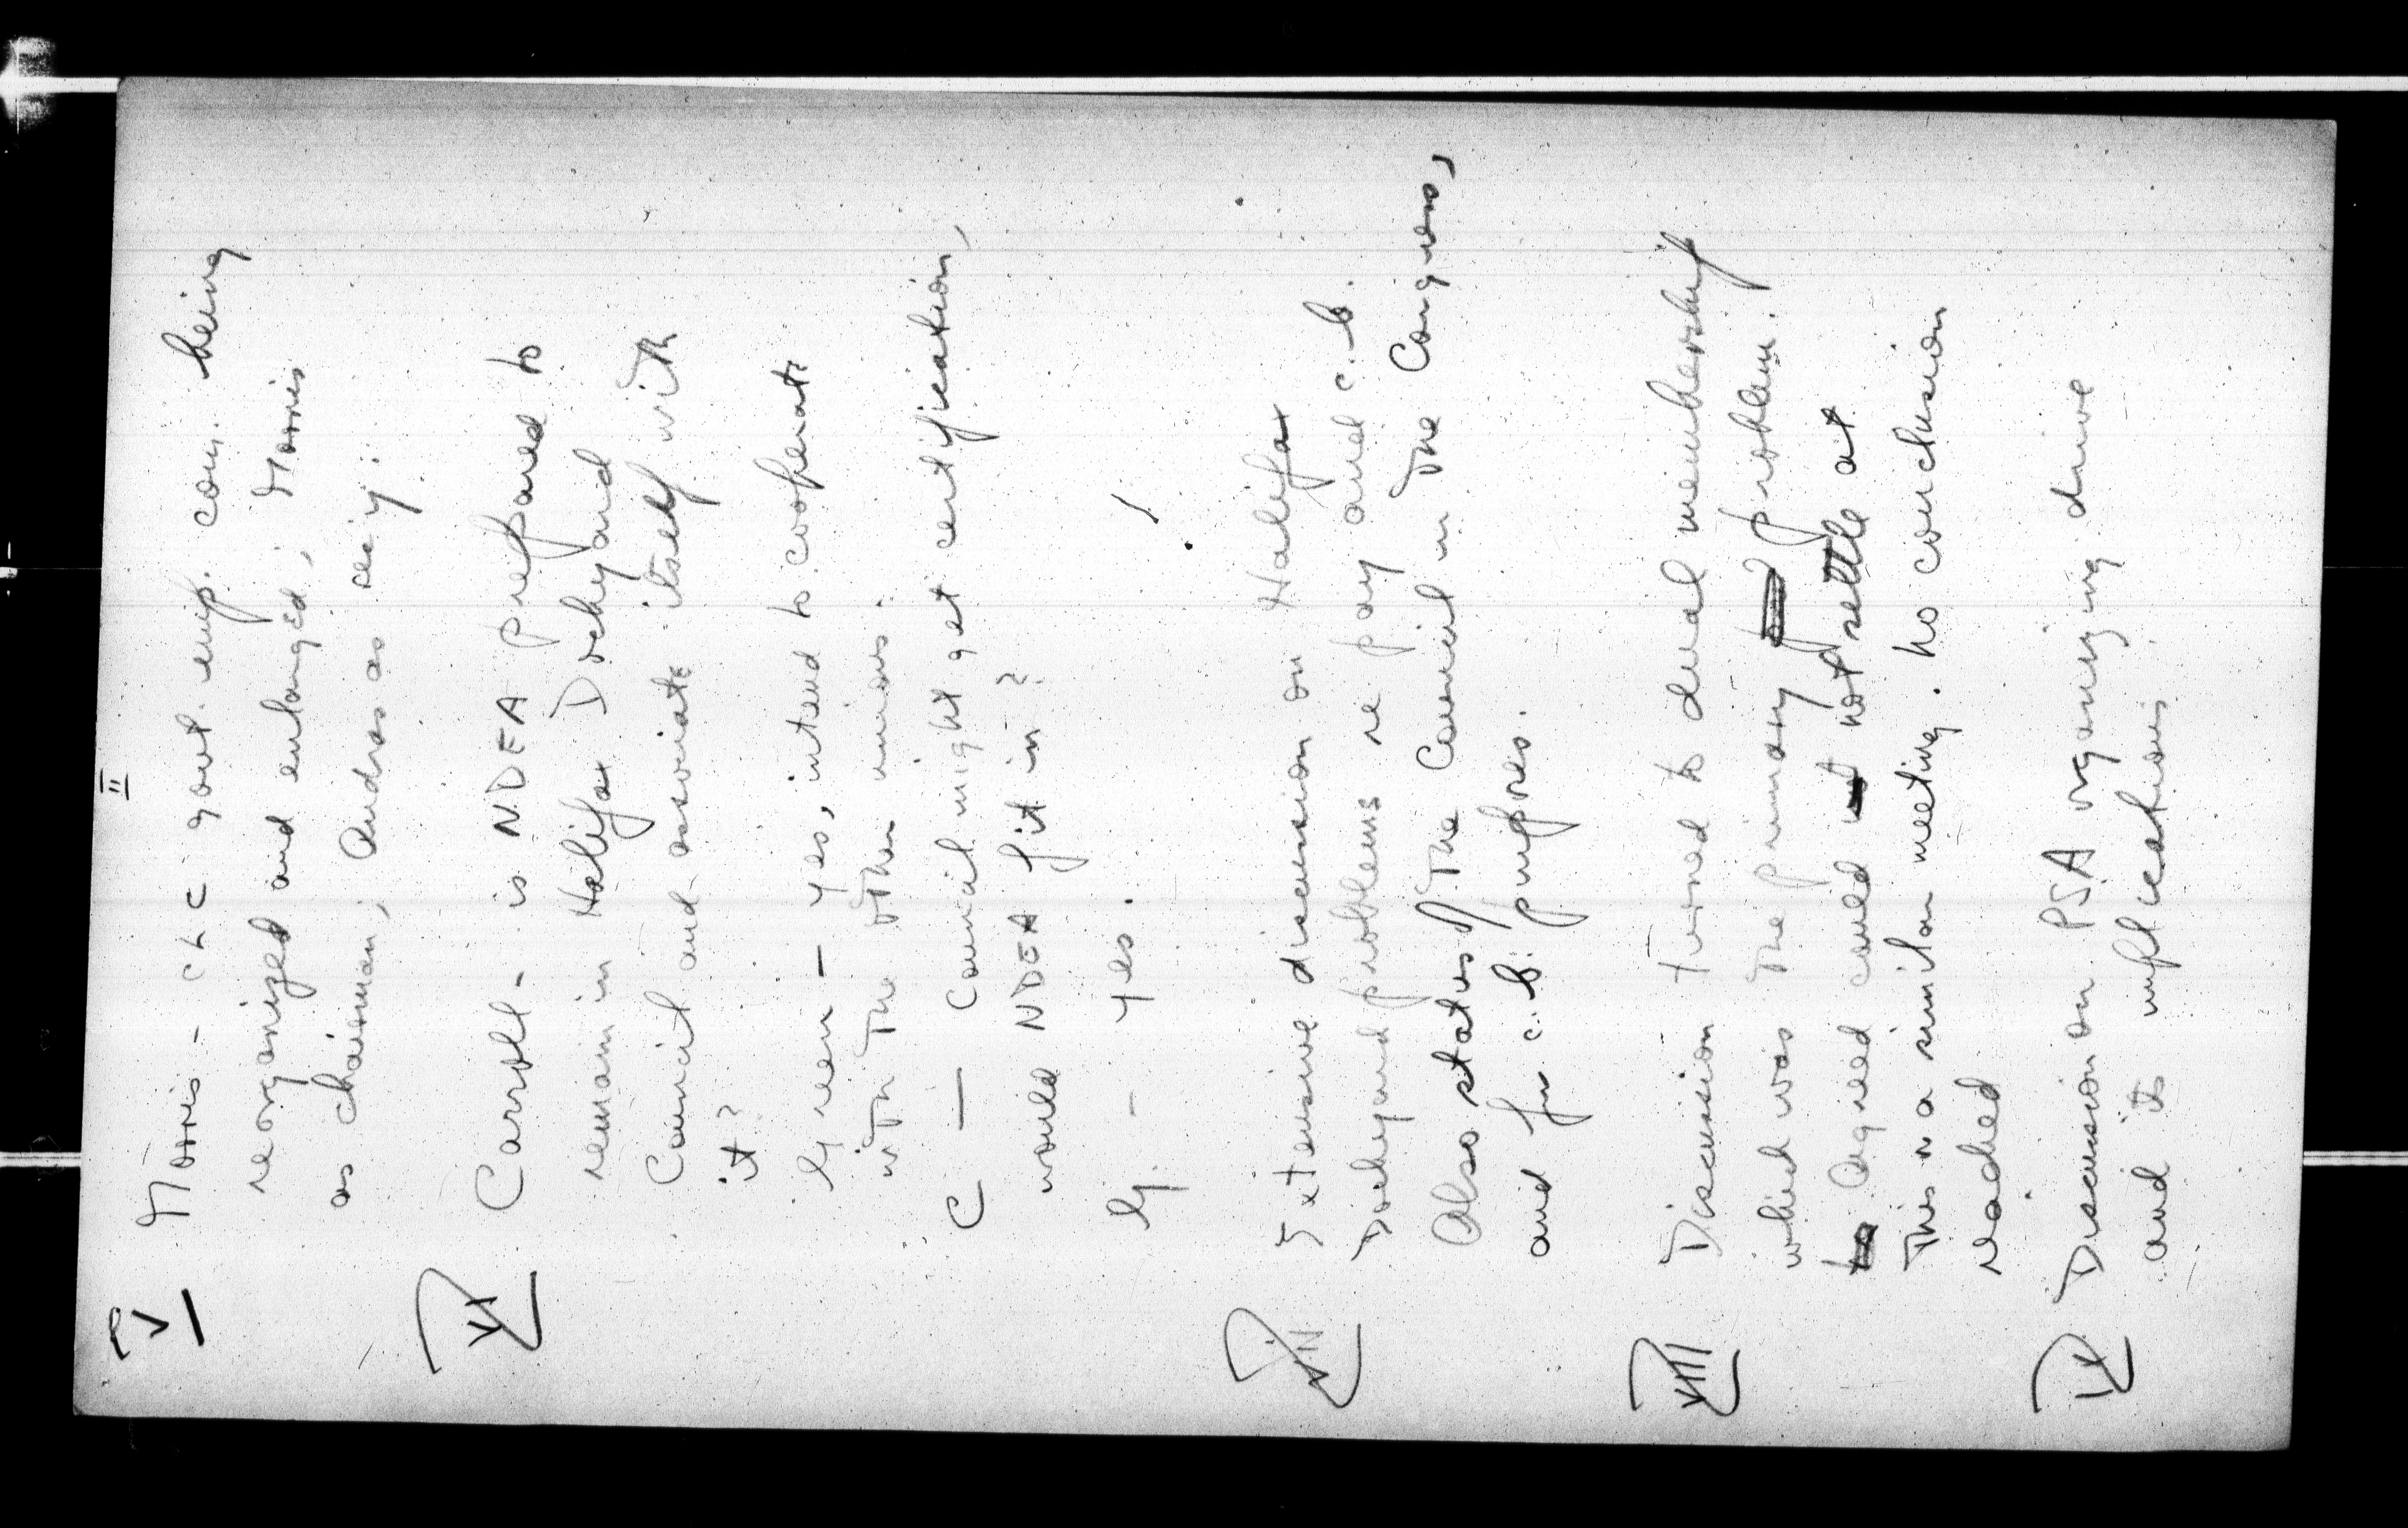 II
V Morris - CLC govt. emp. com. being
reorganized and enlarged, Morris
as chairman, Andras as sec'y.
VI Carroll - is NDEA prepared to
remain in Halifax Dockyard
Council and associate itself with
it?
Green - yes, intend to cooperate
with the other unions.
C - Council might get certification,
would NDEA fit in?
G. - yes.
VII Extensive discussion on Halifax
Dockyard problems re pay and c.b.
Also status of the Council in the Congress,
and for c.b. purposes.
VIII Discussion turned to dual membership
which was the primary problem.
Agreed could not settle at
this or a similar meeting. No conclusion
reached
IX Discussion on PSA organizing drive
and its implications